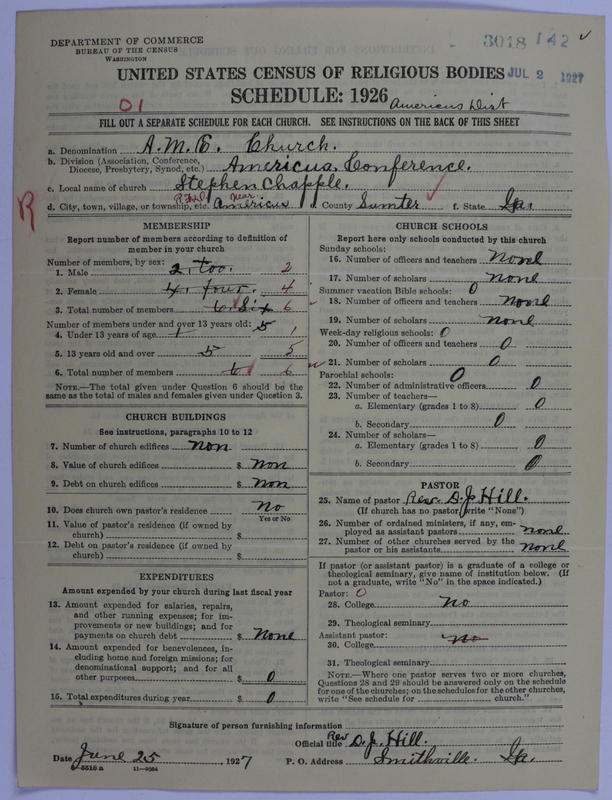 DEPARTMENT OF COMMERCE
BUREAU OF THE CENSUS
WASHINGTON
3018 142
UNITED STATES CENSUS OF RELIGIOUS BODIES JUL 2 1927
SCHEDULE: 1926
01
Americus Dist
FILL OUT A SEPARATE SCHEDULE FOR EACH CHURCH. SEE INSTRUCTIONS ON THE BACK OF THIS SHEET
a. Denomination A.M.E. Church.
b. Division (Association, Conference, Diocese, Presbytery, Synod, etc.) Americus Conference.
c. Local name of church Stephen Chapple.
R.F.D. near
d. City, town, village, or township, etc. Americus e. County Sumter f. State Ga.
R
MEMBERSHIP
Report number of members according to definition of
member in your church
Number of members, by sex:
1. Male 2. too. 2
2. Female 4. four. 4
3. Total number of members 6 Six 6
Number of members under and over 13 years old: 5
4. Under 13 years of age 1 1
5. 13 years old and over 5 5
6. Total number of members 6 6
NOTE.—The total given under Question 6 should be the
same as the total of males and females given under Question 3.
CHURCH BUILDINGS
See instructions, paragraphs 10 to 12
7. Number of church edifices non
8. Value of church edifices $ non
9. Debt on church edifices $ non
10. Does church own pastor's residence No
Yes or No
11. Value of pastor's residence (if owned by
church) $
12. Debt on pastor's residence (if owned by
church) $
EXPENDITURES
Amount expended by your church during last fiscal year
13. Amount expended for salaries, repairs,
and other running expenses; for im-
provements or new buildings; and for
payments on church debt $ None
14. Amount expended for benevolences, in-
cluding home and foreign missions; for
denominational support; and for all
other purposes $ 0
15. Total expenditures during year $ 0
CHURCH SCHOOLS
Report here only schools conducted by this church
Sunday schools:
16. Number of officers and teachers none
17. Number of scholars none
Summer vacation Bible schools: 0
18. Number of officers and teachers none
19. Number of scholars none
Week-day religious schools: 0
20. Number of officers and teachers 0
21. Number of scholars 0
Parochial schools: 0
22. Number of administrative officers 0
23. Number of teachers—
a. Elementary (grades 1 to 8) 0
b. Secondary 0
24. Number of scholars—
a. Elementary (grades 1 to 8) 0
b. Secondary 0
PASTOR
25. Name of pastor Rev. D.J. Hill.
(If church has no pastor, write "None")
26. Number of ordained ministers, if any, em-
ployed as assistant pastors none
27. Number of other churches served by the
pastor or his assistants none
If pastor (or assistant pastor) is a graduate of a college or
theological seminary, give name of institution below. (If
not a graduate, write "No" in the space indicated.)
Pastor: 0
28. College No
29. Theological seminary
Assistant pastor:
30. College No
31. Theological seminary
NOTE.—Where one pastor serves two or more churches,
Questions 28 and 29 should be answered only on the schedule
for one of the churches; on the schedules for the other churches,
write "See schedule for church."
Signature of person furnishing information
Official title Rev D.J. Hill.
Date June 25, 1927 P. O. Address Smithville. Ga.
8-5518 a 11—9064